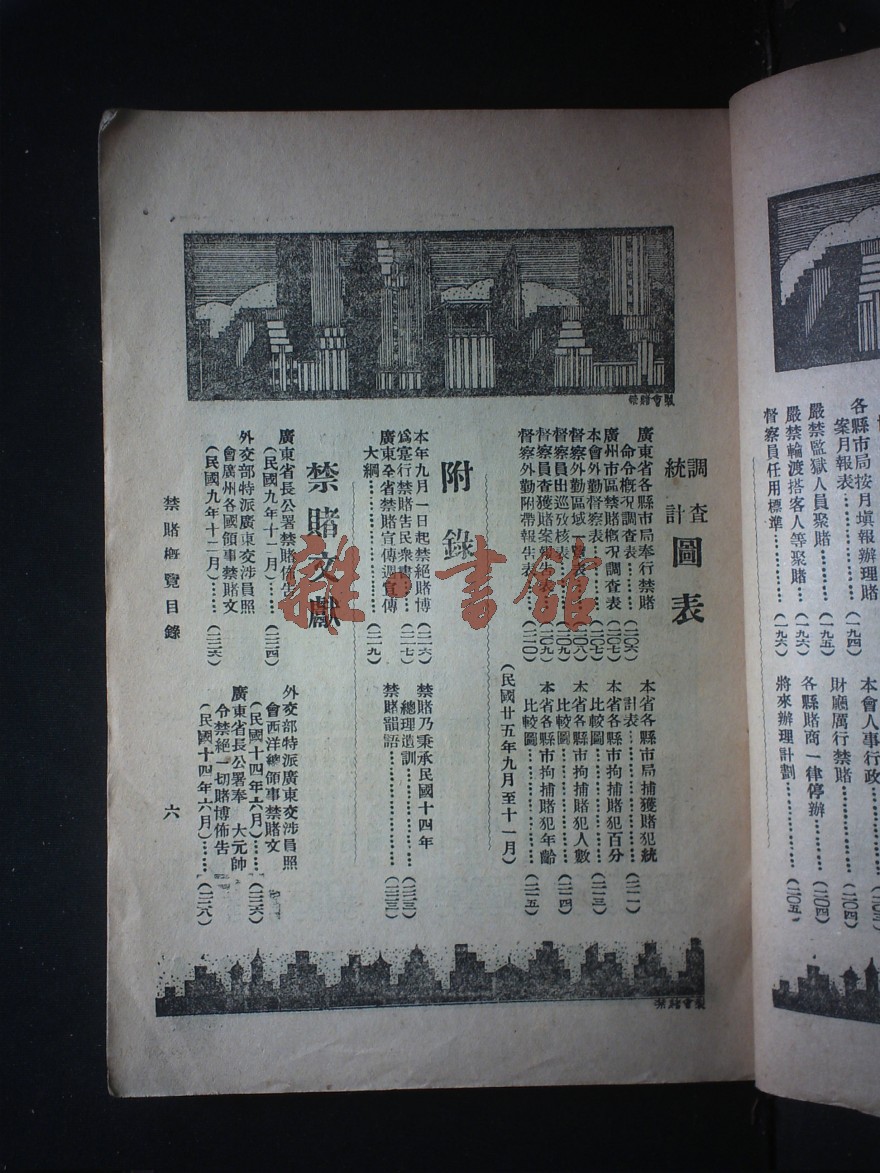 各縣市局按月填報辦理賭
案月報表⋯⋯(一九四)
嚴禁監獄人員聚賭⋯⋯(一九五)
嚴禁輪渡搭客人等聚賭⋯⋯(一九六)
督察員任用標準⋯⋯(一九六)
本會人事行政
財廳厲行禁賭⋯⋯(二〇四)
各縣賭商一律停辦⋯⋯(二〇四)
將來辦理計劃⋯⋯(二〇五)
禁賭會製
調查統計圖表
廣東省各縣市局奉行禁賭
命令概況調查表⋯⋯(二〇六)
廣州市區禁賭概況調查表⋯(二〇七)
本會外勤督察表⋯⋯(二〇七)
督察外勤區域一覽表⋯⋯(二〇八)
督察員出巡攷核表⋯⋯(二〇九)
督察員查獲賭案報告表⋯⋯(二〇九)
督察外勤附帶報告表⋯⋯(二一〇)
本省各縣市局捕獲賭犯統
計表⋯⋯(二一一)
本省各縣市拘捕賭犯百分
比較圖⋯⋯(二一三)
本省各縣市拘捕賭犯人數
比較圖⋯⋯(二一四)
本省各縣市拘捕賭犯年齡
比較圖⋯⋯(二一五)
(民國廿五年九月至十一月)
附錄
本年九月一日起禁絕賭博⋯(二一六)
為厲行禁賭告民衆書⋯⋯(二一七)
廣東全省禁賭宣傳週宣傳
大綱⋯⋯(二一九)
禁賭乃秉承民國十四年
總理遺訓⋯⋯(二二三)
禁賭韻語⋯⋯(二二三)
禁賭文獻
廣東省長公署禁賭佈告
(民國九年十二月)⋯⋯(二二四)
外交部特派廣東交涉員照
會廣州各國領事禁賭文
(民國九年十二月)⋯⋯(二二六)
外交部特派廣東交涉員照
會西洋總領事禁賭文
(民國十四年六月)⋯⋯(二二六)
廣東省長公署奉 大元帥
令禁絕一切賭博佈告
(民國十四年六月)⋯⋯(二二八)
禁賭概覽目錄
六
禁賭會製
雜·書館